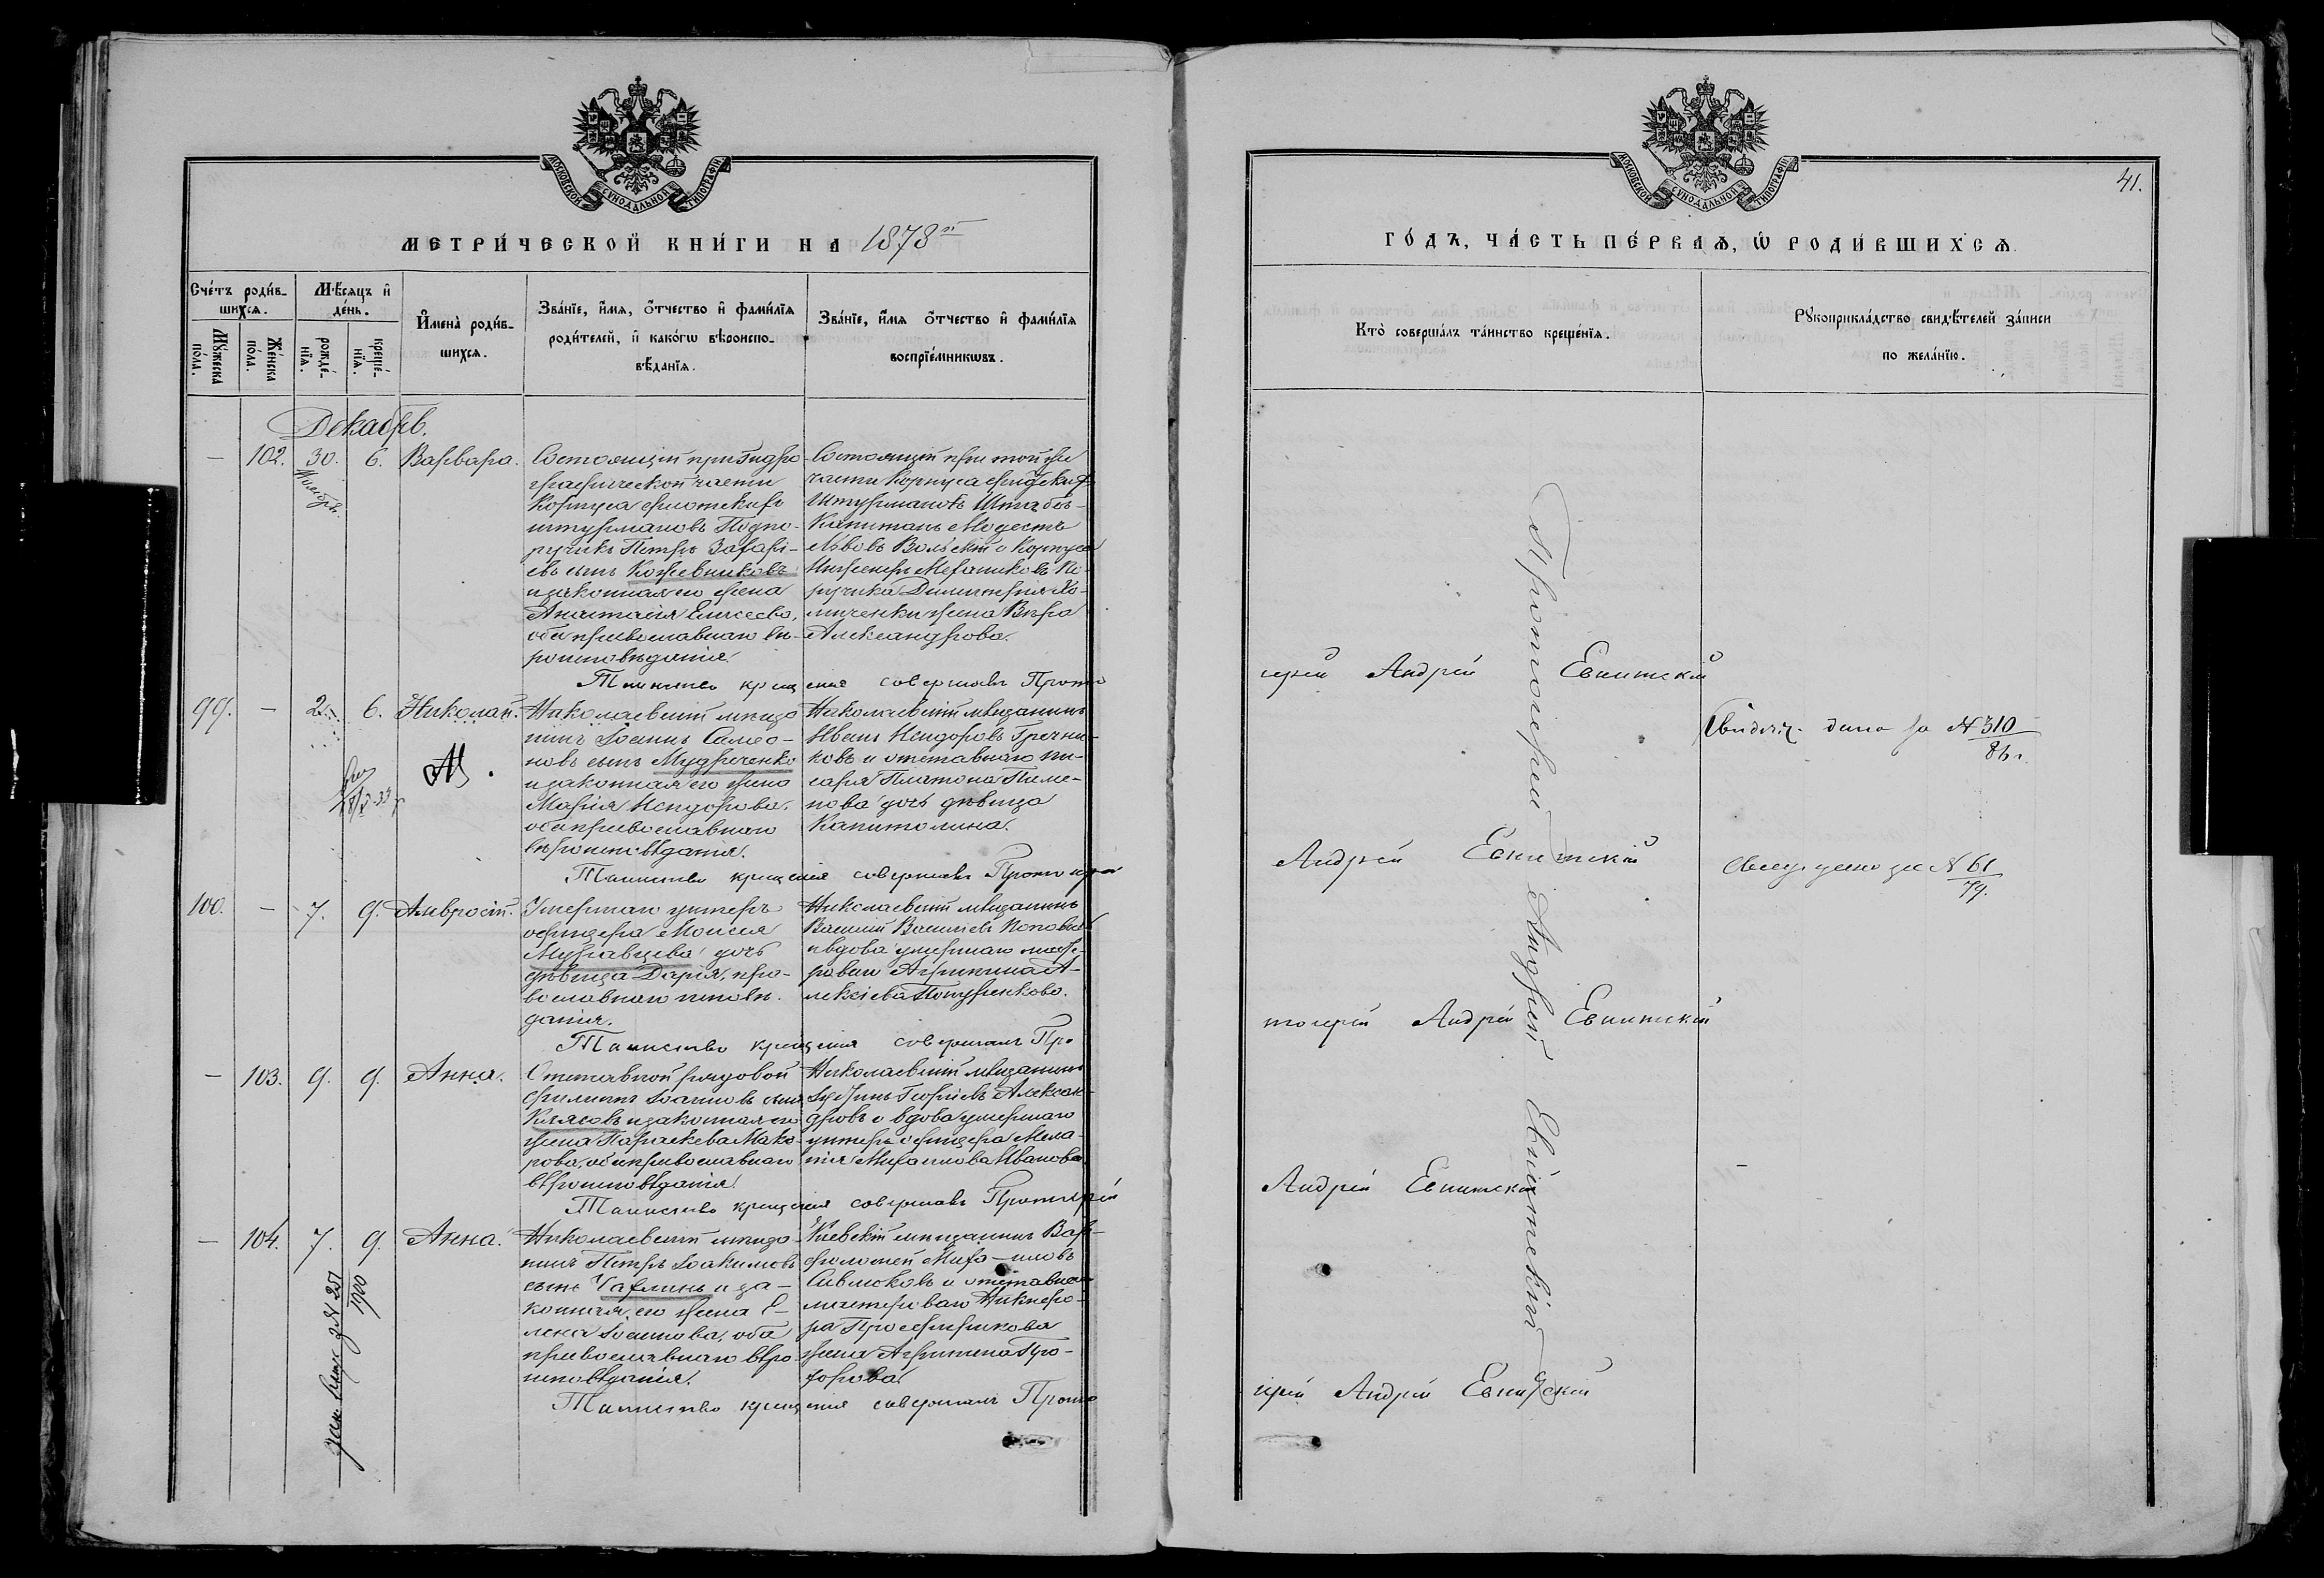 МОСКОВСКОЙ СѴНОДАЛЬНОЙ ТИПОГРАФІИ
МЕТРИ́ЧЕСКОЙ КНИ́ГИ НА 1878й
Сче́тъ роди́вшихсѧ.
Мꙋ́жеска по́ла.
Же́нска по́ла.
Мѣ́сѧцъ и҆ де́нь.
рожде́нїѧ.
креще́нїѧ.
И҆мена̀ роди́вшихсѧ.
Зва́нїе, и҆́мѧ, ѻ҆́тчество и҆ фами́лїѧ
роди́телей, и҆ како́гѡ вѣроиспо-
вѣ́данїѧ.
Зва́нїе, и҆́мѧ ѻ҆́тчество и҆ фами́лїѧ
воспрїе́мникѡвъ.
Декабрь.
— 102. 30. 6. Варвара.
Ноябрь.
Состоящій при Гидро-
графической части
Корпуса флотскихъ
штурмановъ Подпо-
ручикъ Петръ Захарі-
евъ сынъ Кожевниковъ
и законная его жена
Анастасія Елисеева,
оба православнаго вѣ-
роисповѣданія.
Состоящій при той же
части Корпуса флотскихъ
Штурмановъ Штабсъ-
Капитанъ Модестъ
Львовъ Вольскій и Корпуса
Инженеръ Механиковъ По-
ручика Димитрія Хо-
миченки жена Вѣра
Александрова.
Таинство крещенія совершалъ Прото
99. — 2. 6. Николай.
Николаевскій мѣща-
нинъ Іоаннъ Симео-
новъ сынъ Мудреченко
и законная его жена
Марія Исидорова,
оба православнаго
вѣроисповѣданія.
Николаевскій мѣщанинъ
Иванъ Исидоровъ Гречни-
ковъ и отставнаго пи-
саря Платона Пиме-
нова дочь дѣвица
Капитолина.
Таинство крещенія совершалъ Протоіерей
100. — 7. 9. Амвросій.
Умершаго унтеръ
офицера Моисея
Муравцева дочь
дѣвица Дарія, пра-
вославнаго исповѣ-
данія.
Николаевскій мѣщанинъ
Василій Васильевъ Поповъ
и вдова умершаго масте-
роваго Агрипина А-
лексіева Потуренкова.
Таинство крещенія совершалъ Про
— 103. 9. 9. Анна.
Отставной рядовой
Филиппъ Іоанновъ сынъ
Клясовъ и законная его
жена Параскева Мака-
рова, оба православнаго
вѣроисповѣданія.
Николаевскій мѣщанинъ
Георгіевъ Алексан-
дровъ и вдова умершаго
унтеръ офицера Мела-
нія Михаилова Иванова.
Таинство крещенія совершалъ Протоіерей
— 104. 7. 9. Анна.
№ 251
1900
Николаевскій мѣща-
нинъ Петръ Іоакимовъ
сынъ Чаглинъ и за-
конная его жена Е-
лена Іоаннова, оба
православнаго вѣро-
исповѣданія.
Кіевскій мѣщанинъ Вар-
фоломей Миха-иловъ
Сивлюковъ и отставнаго
мастероваго Никифо-
ра Просфирникова
жена Агрипина Про-
хорова.
Таинство крещенія совершалъ Прото
МОСКОВСКОЙ СѴНОДАЛЬНОЙ ТИПОГРАФІИ
41.
ГО́ДЪ, ЧА́СТЬ ПЕ́РВАѦ, Ѡ҆ РОДИ́ВШИХСѦ
Кто̀ соверша́лъ та́инство креще́нїѧ.
Рꙋкоприкла́дство свидѣ́телей за́писи
по жела́нїю.
іерей Андрей Евнитскій
Свидѣт. дано за № 310
86 г.
Андрей Евнитскій
Свид. дано за № 61
79.
тоіерей Андрей Евнитскій
Андрей Евнитскій
іерей Андрей Евнитскій
Протоіерей Андрей Евнитскій